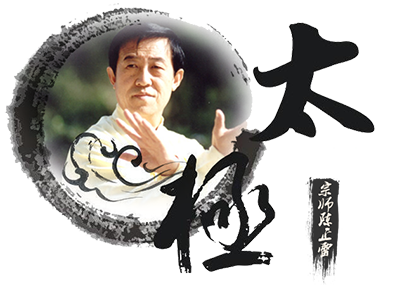 太
極
宗师陈正雷